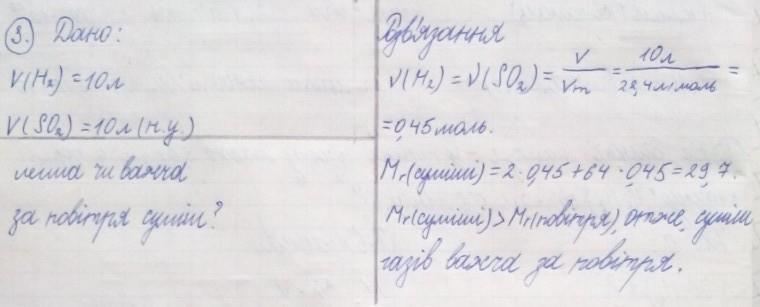 3. Дано:
V(H₂) = 10л
V(SO₂) = 10л (н.у.)
легша чи важча
за повітря суміш?
Розв'язання
ν(H₂) = ν(SO₂) = V/Vm = 10л/22,4л/моль =
= 0,45 моль.
Mr(суміші) = 2 · 0,45 + 64 · 0,45 = 29,7.
Mr(суміші) > Mr(повітря), отже, суміш
газів важча за повітря.